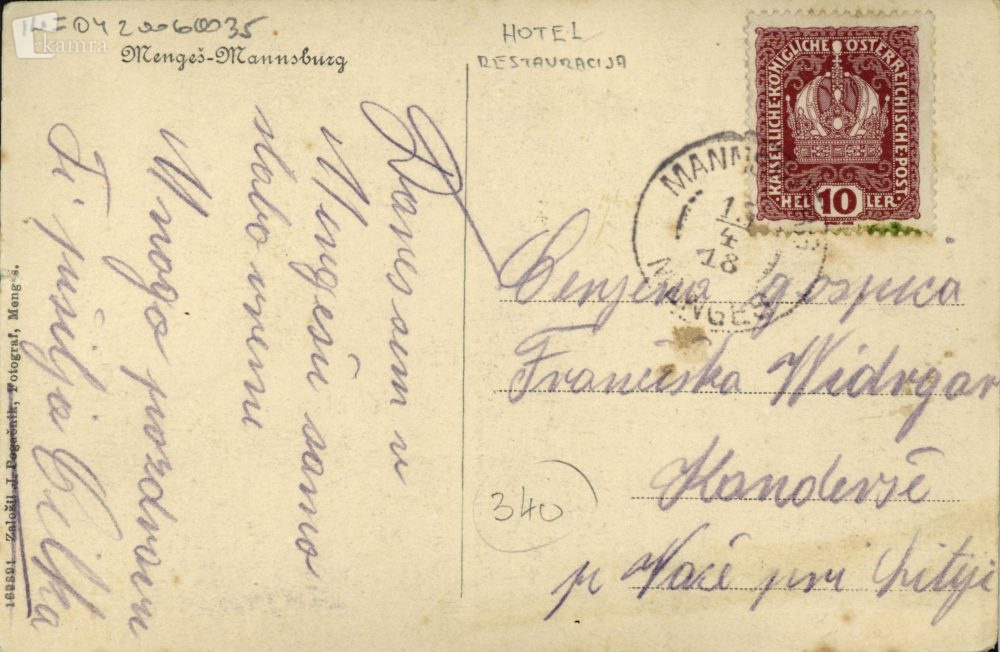 kamra
Mengeš-Mannsburg
HOTEL
RESTAVRACIJA
KAISERLICHE·KÖNIGLICHE ÖSTERREICHISCHE·POST
HELLER
10
MANNSBURG
4
18
MENGEŠ
Danes sem v
Mengešu samo
slabo vreme
Mnogo pozdravov
Ti pošilja Cilka
Cenjena gospica
Frančiška Widrgar
Kandrše
p. Vače pri Litiji
340
162891 Založil J. Pogačnik, Fotograf, Mengeš.